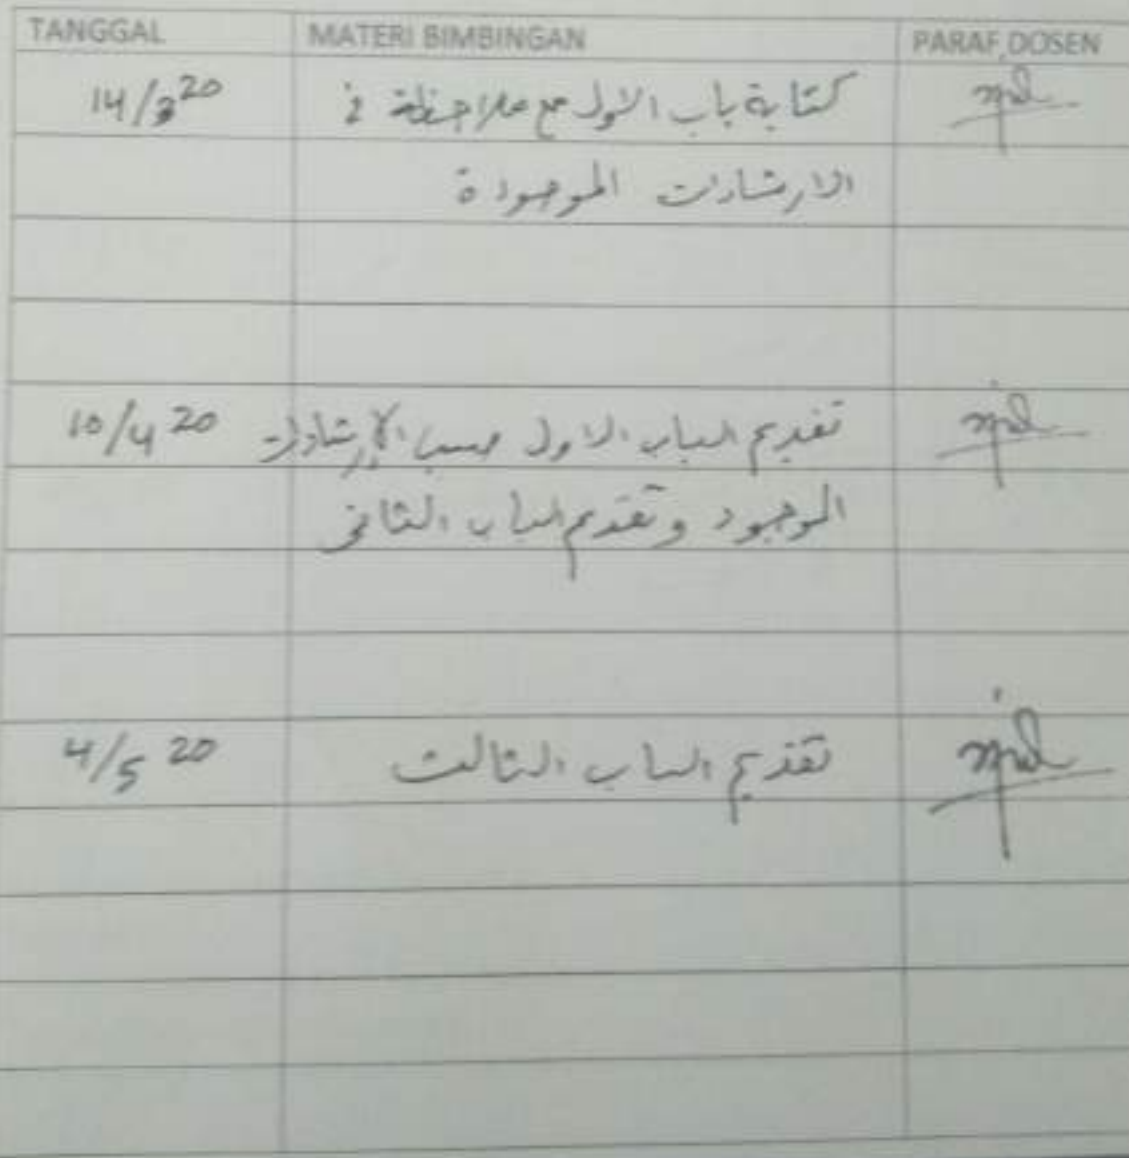 TANGGAL MATERI BIMBINGAN PARAF DOSEN
14/3 20 كتابة باب الاول مع ملاحظة في
الارشادات الموجودة
10/4 20 تقديم الباب الاول حسب الإرشادات
الموجود وتقديم الباب الثاني
4/5 20 تقديم الباب الثالث